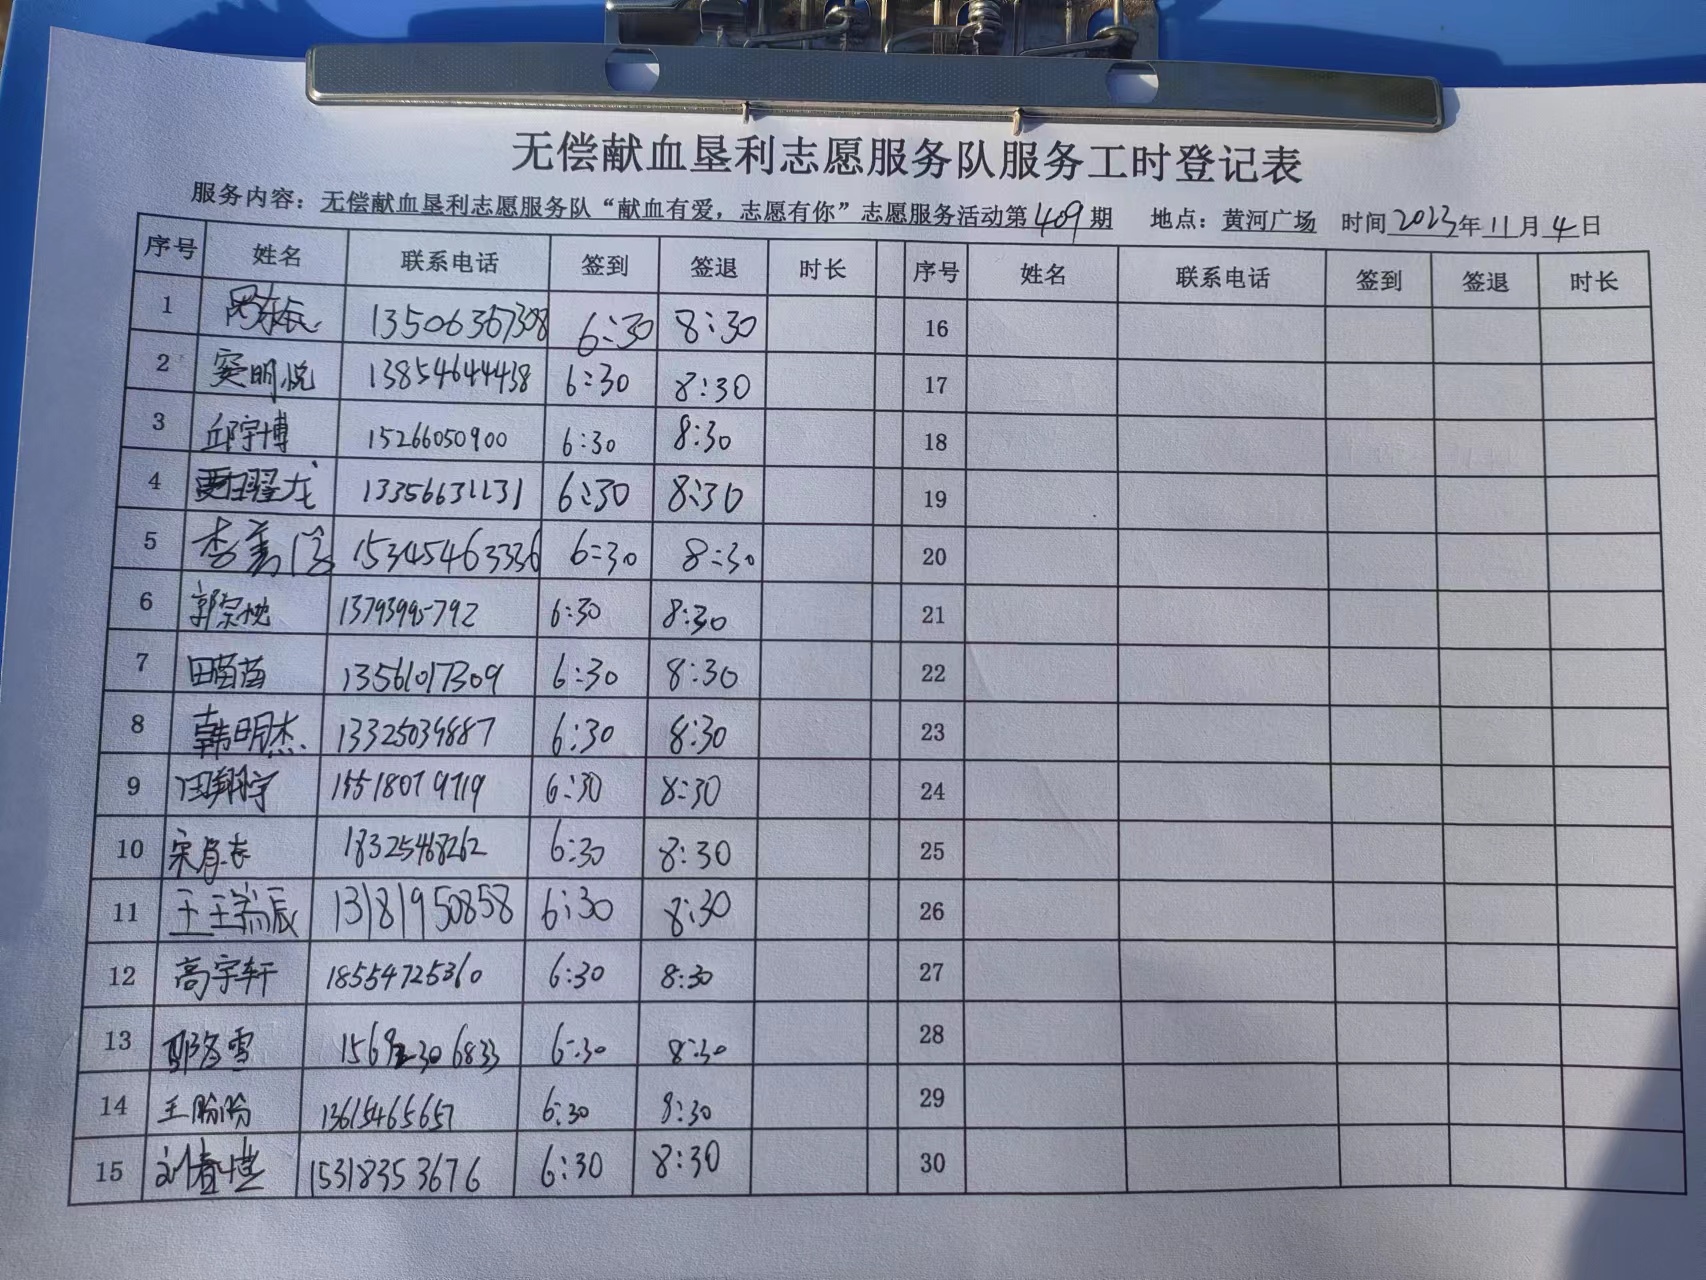 无偿献血垦利志愿服务队服务工时登记表
服务内容：无偿献血垦利志愿服务队“献血有爱，志愿有你”志愿服务活动第409期 地点：黄河广场 时间2023年11月4日
序号 姓名 联系电话 签到 签退 时长 序号 姓名 联系电话 签到 签退 时长
1 13506367308 6:30 8:30 16
2 窦明悦 13854644438 6:30 8:30 17
3 邱宇博 15266050900 6:30 8:30 18
4 龙 13356631131 6:30 8:30 19
5 李 15345463336 6:30 8:30 20
6 郭宗 6:30 8:30 21
7 田苗苗 13561017309 6:30 8:30 22
8 韩明杰 13325039887 6:30 8:30 23
9 田翔宇 6:30 8:30 24
10 宋肖 18325468262 6:30 8:30 25
11 王瑞辰 13181950858 6:30 8:30 26
12 高宇轩 18554725360 6:30 8:30 27
13 雪 6:30 8:30 28
14 王盼盼 13615465657 6:30 8:30 29
15 刘春博 15318353676 6:30 8:30 30